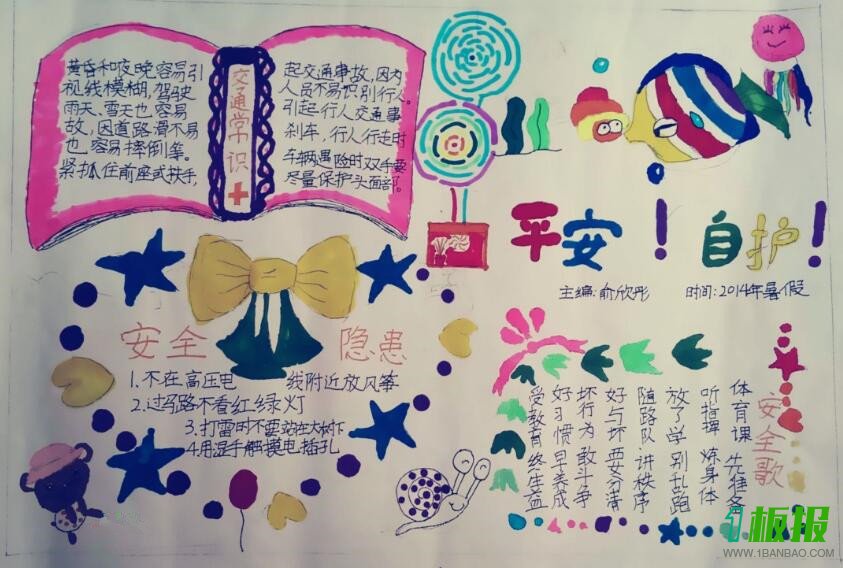 黄昏和夜晚容易引
视线模糊,驾驶
雨天、雪天也容易
故,因道路滑不易
也容易摔倒等。
紧抓住前座或扶手,
交通常识
起交通事故,因为
人员不易识别行人。
引起行人交通事
刹车,行人行走时
车辆遇险时双手要
尽量保护头面部。
平安!自护!
主编:俞欣彤 时间:2014年暑假
安全 隐患
1.不在高压电 线附近放风筝
2.过马路不看红绿灯
3.打雷时不要站在大树下
4.用湿手触摸电插孔
安全歌
体育课 先准备
听指挥 炼身体
放了学 别乱跑
随路队 讲秩序
好与坏 要分清
坏行为 敢斗争
好习惯 早养成
受教育 终生益
1板报
WWW.1BANBAO.COM